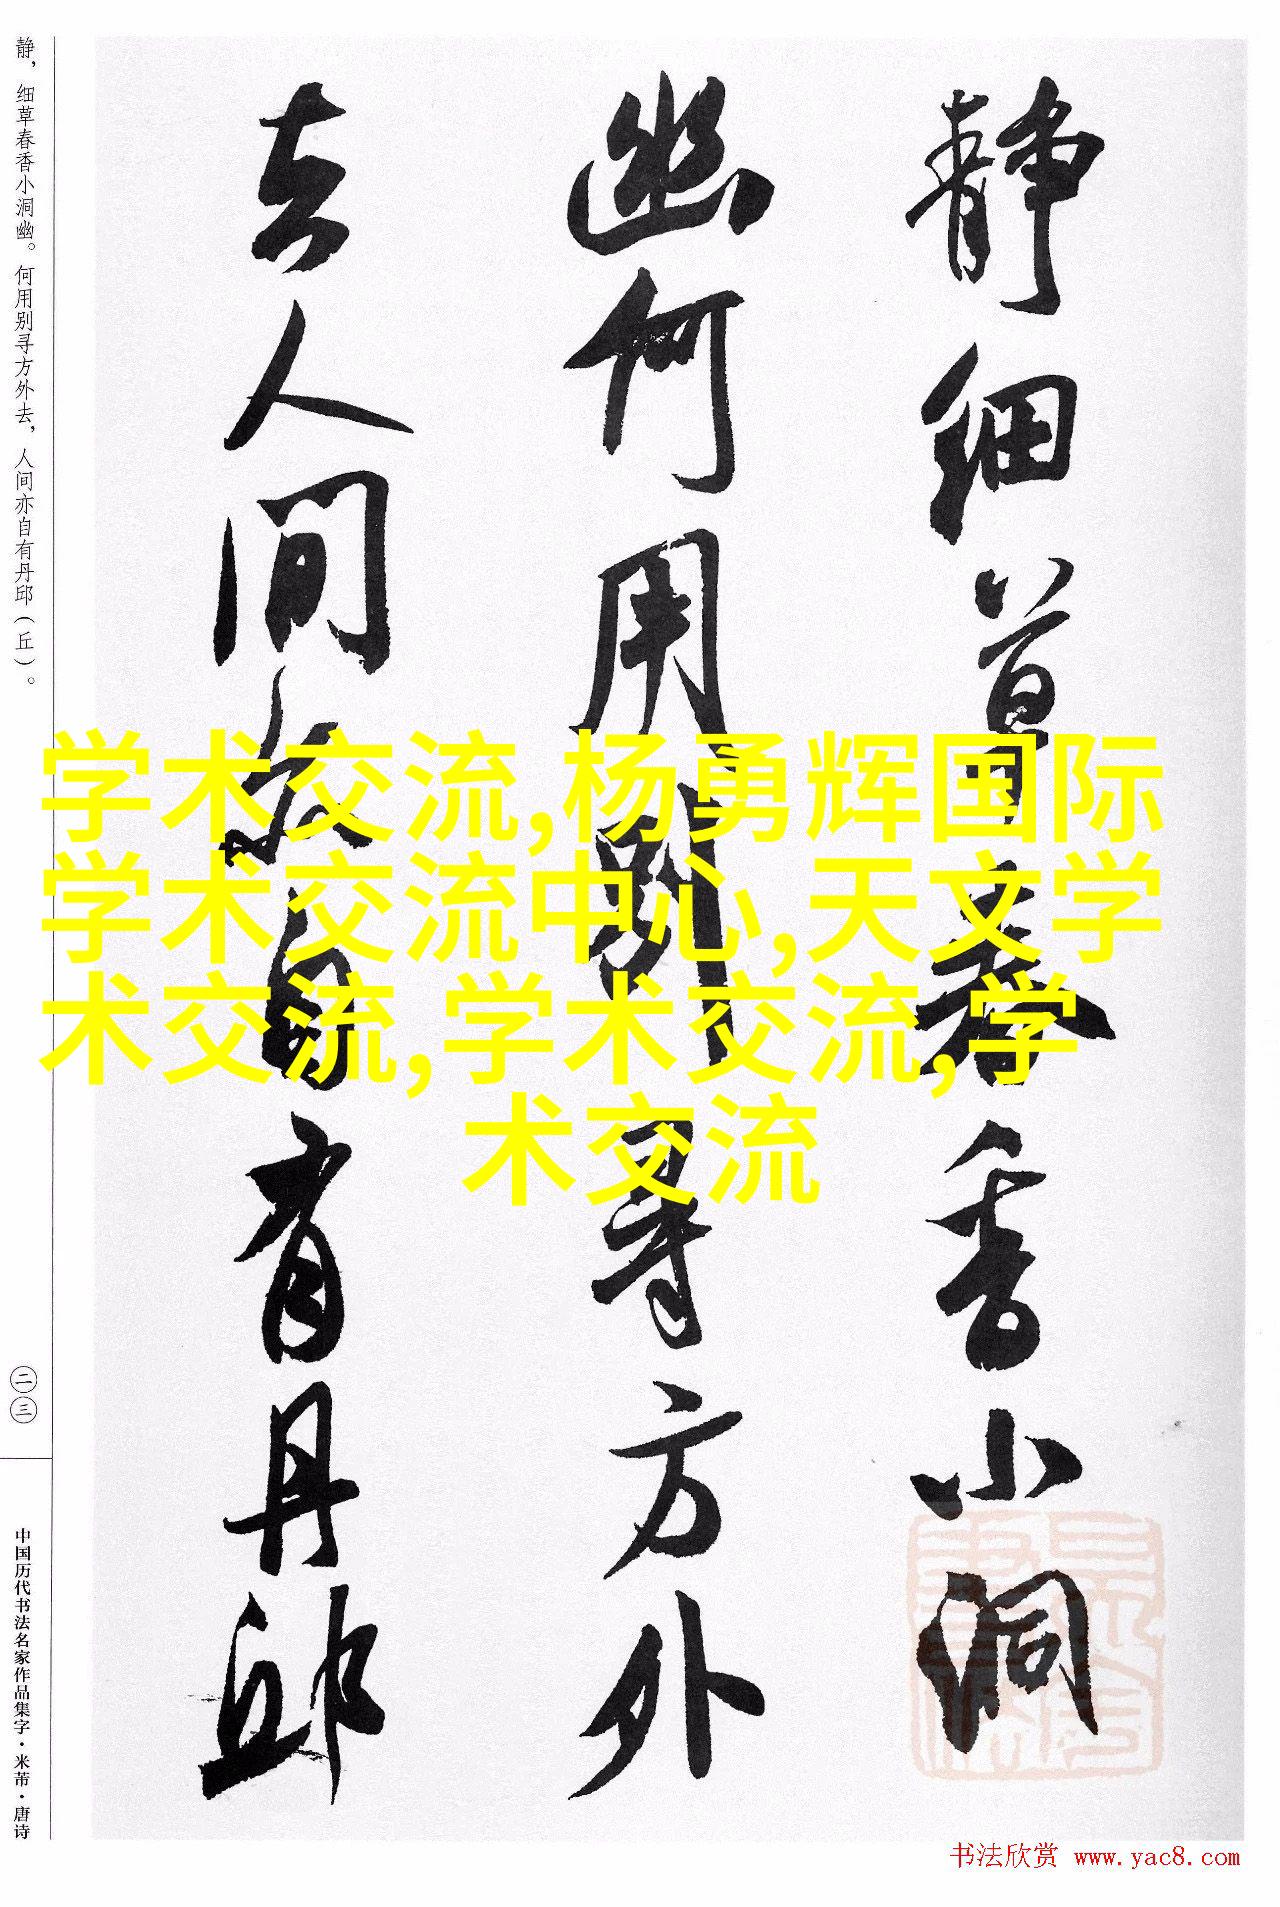 静细草春香小洞
幽何用别寻方外
去人间亦自有丹邱
静，细草春香小洞幽。何用别寻方外去，人间亦自有丹邱（丘）。
二三
中国历代书法名家作品集字·米芾·唐诗
学术交流,杨勇辉国际
学术交流中心,天文学
术交流,学术交流,学
术交流
书法欣赏 www.yac8.com